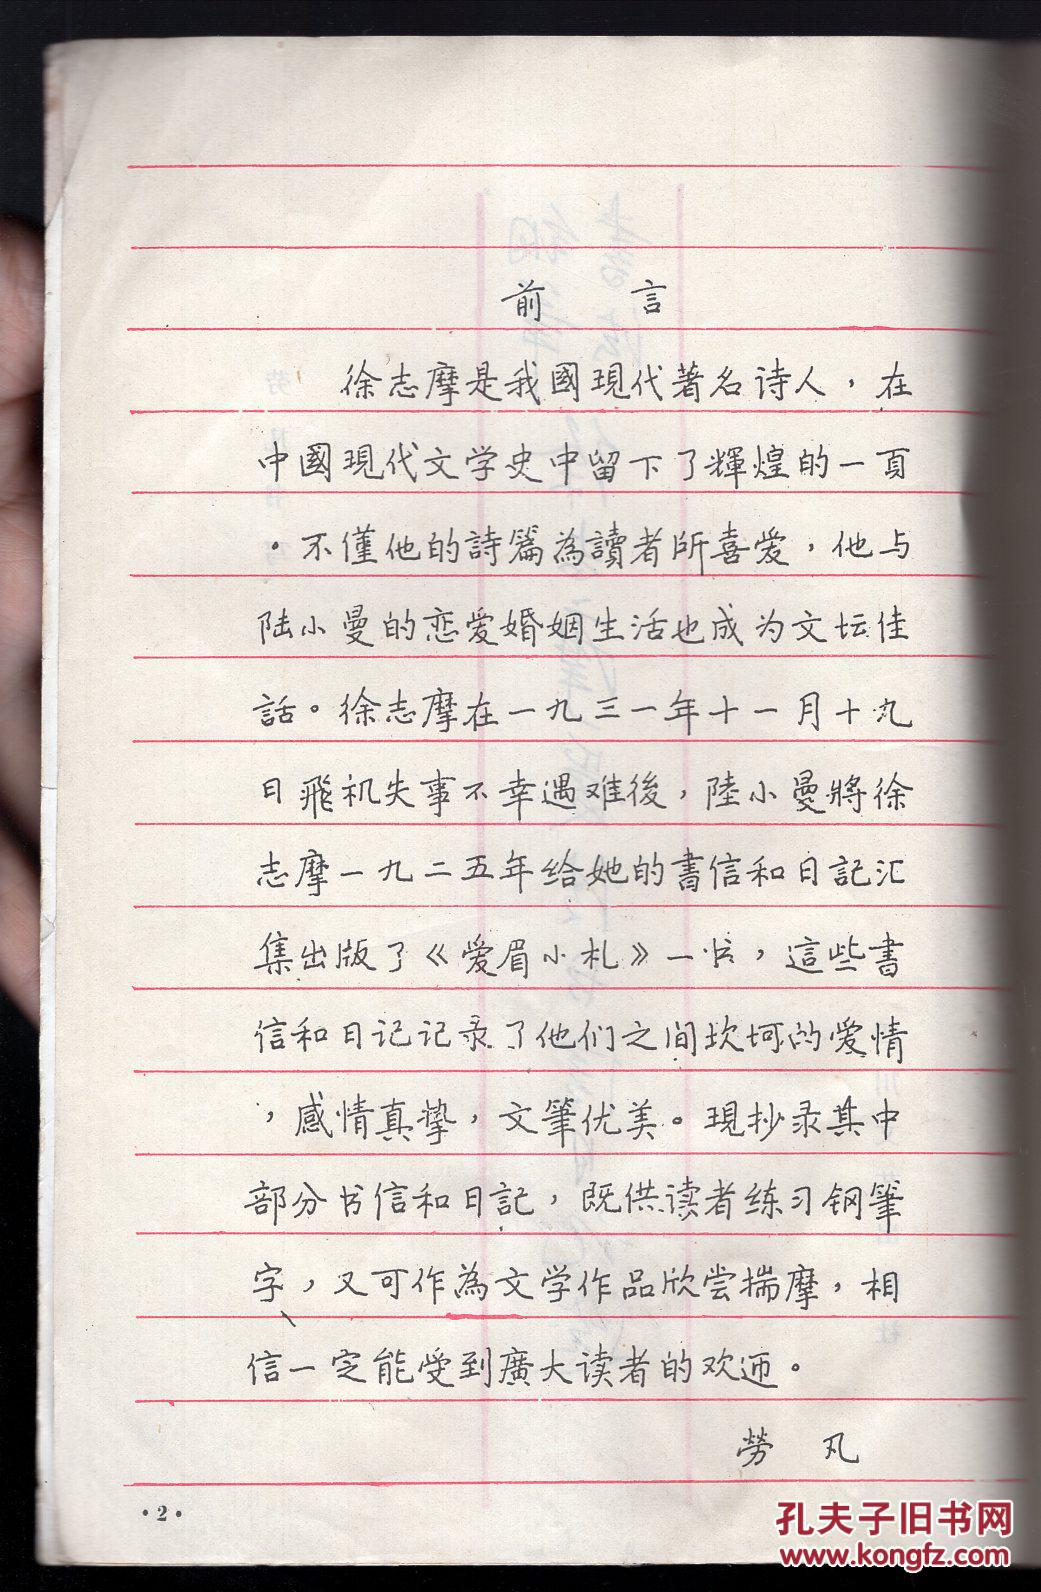 前 言
徐志摩是我國現代著名诗人，在
中國現代文学史中留下了輝煌的一頁
。不僅他的詩篇為讀者所喜爱，他与
陆小曼的恋爱婚姻生活也成为文坛佳
話。徐志摩在一九三一年十一月十九
日飛机失事不幸遇难後，陸小曼將徐
志摩一九二五年给她的書信和日記汇
集出版了《爱眉小札》一书，這些書
信和日记记录了他们之间坎坷的爱情
，感情真挚，文筆优美。現抄录其中
部分书信和日記，既供读者练习钢筆
字，又可作為文学作品欣尝揣摩，相
信一定能受到廣大读者的欢迊。
勞 凡
·2·
孔夫子旧书网
www.kongfz.com